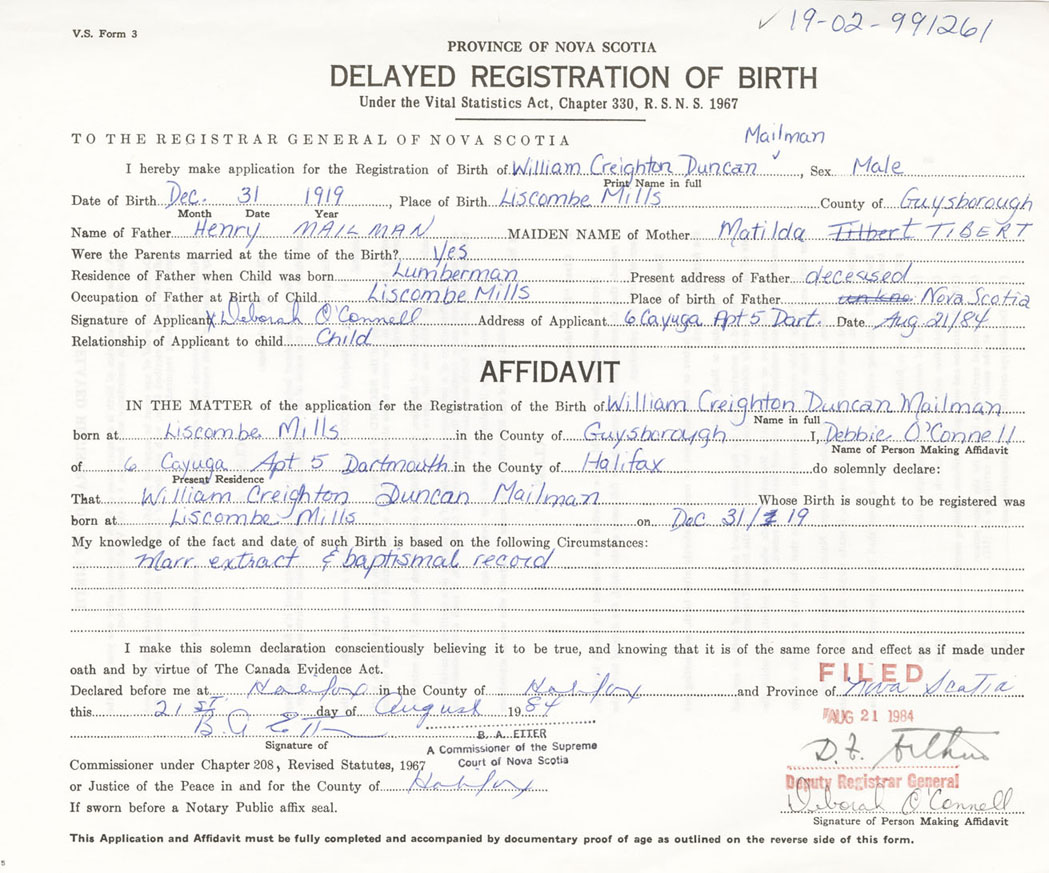 V.S. Form 3
✓ 19-02-991261
PROVINCE OF NOVA SCOTIA
DELAYED REGISTRATION OF BIRTH
Under the Vital Statistics Act, Chapter 330, R.S.N.S. 1967
TO THE REGISTRAR GENERAL OF NOVA SCOTIA
Mailman
I hereby make application for the Registration of Birth of William Creighton Duncan ✓, Sex Male
Print Name in full
Date of Birth Dec. 31 1919, Place of Birth Liscombe Mills County of Guysborough
Month Date Year
Name of Father Henry MAILMAN MAIDEN NAME of Mother Matilda Tilbert TIBERT
Were the Parents married at the time of the Birth? Yes
Residence of Father when Child was born Lumberman Present address of Father deceased
Occupation of Father at Birth of Child Liscombe Mills Place of birth of Father Nova Scotia
Signature of Applicant X Deborah O'Connell Address of Applicant 6 Cayuga Apt 5 Dart. Date Aug 21/84
Relationship of Applicant to child Child
AFFIDAVIT
IN THE MATTER of the application for the Registration of the Birth of William Creighton Duncan Mailman
Name in full
born at Liscombe Mills in the County of Guysborough I, Debbie O'Connell
Name of Person Making Affidavit
of 6 Cayuga Apt 5 Dartmouth in the County of Halifax do solemnly declare:
Present Residence
That William Creighton Duncan Mailman Whose Birth is sought to be registered was
born at Liscombe Mills on Dec 31/19
My knowledge of the fact and date of such Birth is based on the following Circumstances:
Marr extract & baptismal record
I make this solemn declaration conscientiously believing it to be true, and knowing that it is of the same force and effect as if made under
oath and by virtue of The Canada Evidence Act.
FILED
Declared before me at Halifax in the County of Halifax and Province of Nova Scotia
this 21st day of August 1984
AUG 21 1984
B. A. ETTER
Signature of
A Commissioner of the Supreme
Court of Nova Scotia
Commissioner under Chapter 208, Revised Statutes, 1967
Deputy Registrar General
or Justice of the Peace in and for the County of Halifax
Deborah O'Connell
If sworn before a Notary Public affix seal.
Signature of Person Making Affidavit
This Application and Affidavit must be fully completed and accompanied by documentary proof of age as outlined on the reverse side of this form.
5